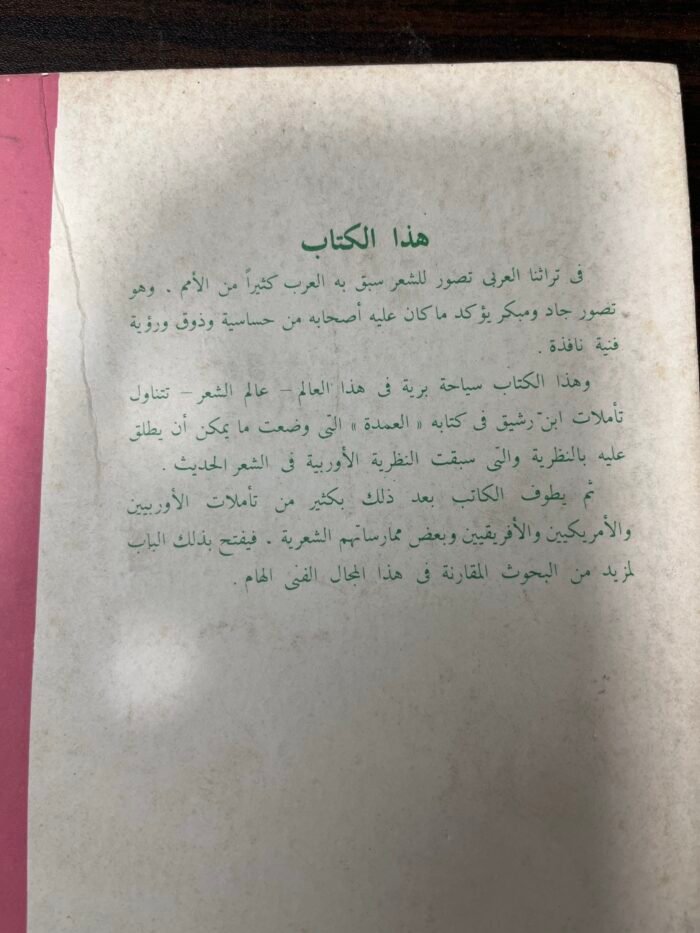 هذا الكتاب
فى تراثنا العربى تصور للشعر سبق به العرب كثيراً من الأمم . وهو
تصور جاد ومبكر يؤكد ماكان عليه أصحابه من حساسية وذوق ورؤية
فنية نافذة .
وهذا الكتاب سياحة برية فى هذا العالم – عالم الشعر – تتناول
تأملات ابن رشيق فى كتابه « العمدة » التى وضعت ما يمكن أن يطلق
عليه بالنظرية والتى سبقت النظرية الأوربية فى الشعر الحديث .
ثم يطوف الكاتب بعد ذلك بكثير من تأملات الأوربيين
والأمريكيين والأفريقيين وبعض ممارساتهم الشعرية . فيفتح بذلك الباب
لمزيد من البحوث المقارنة فى هذا المجال الفنى الهام .